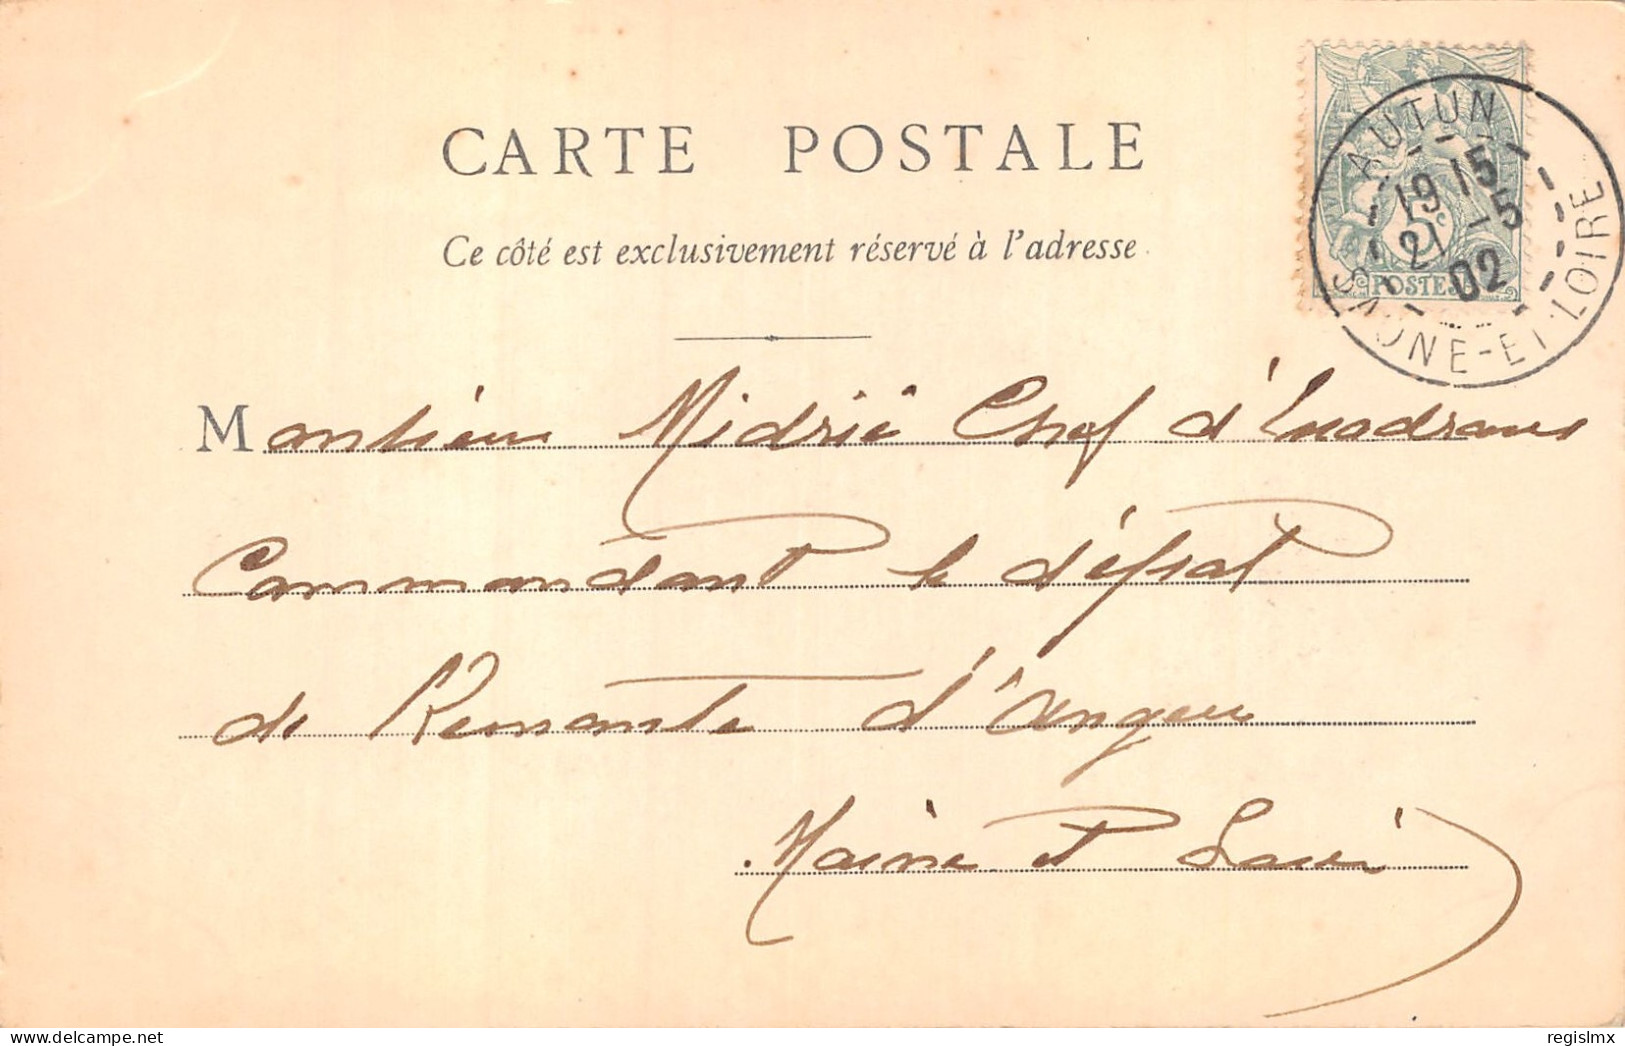 CARTE POSTALE
Ce côté est exclusivement réservé à l'adresse
AUTUN
19 15
21 -5
02
SAONE-ET-LOIRE
5c
POSTES
Monsieur Midrié Chef d'Escadrons
Commandant le dépot
de Remonte d'Angers
Maine et Loire
delcampe.net
regislmx